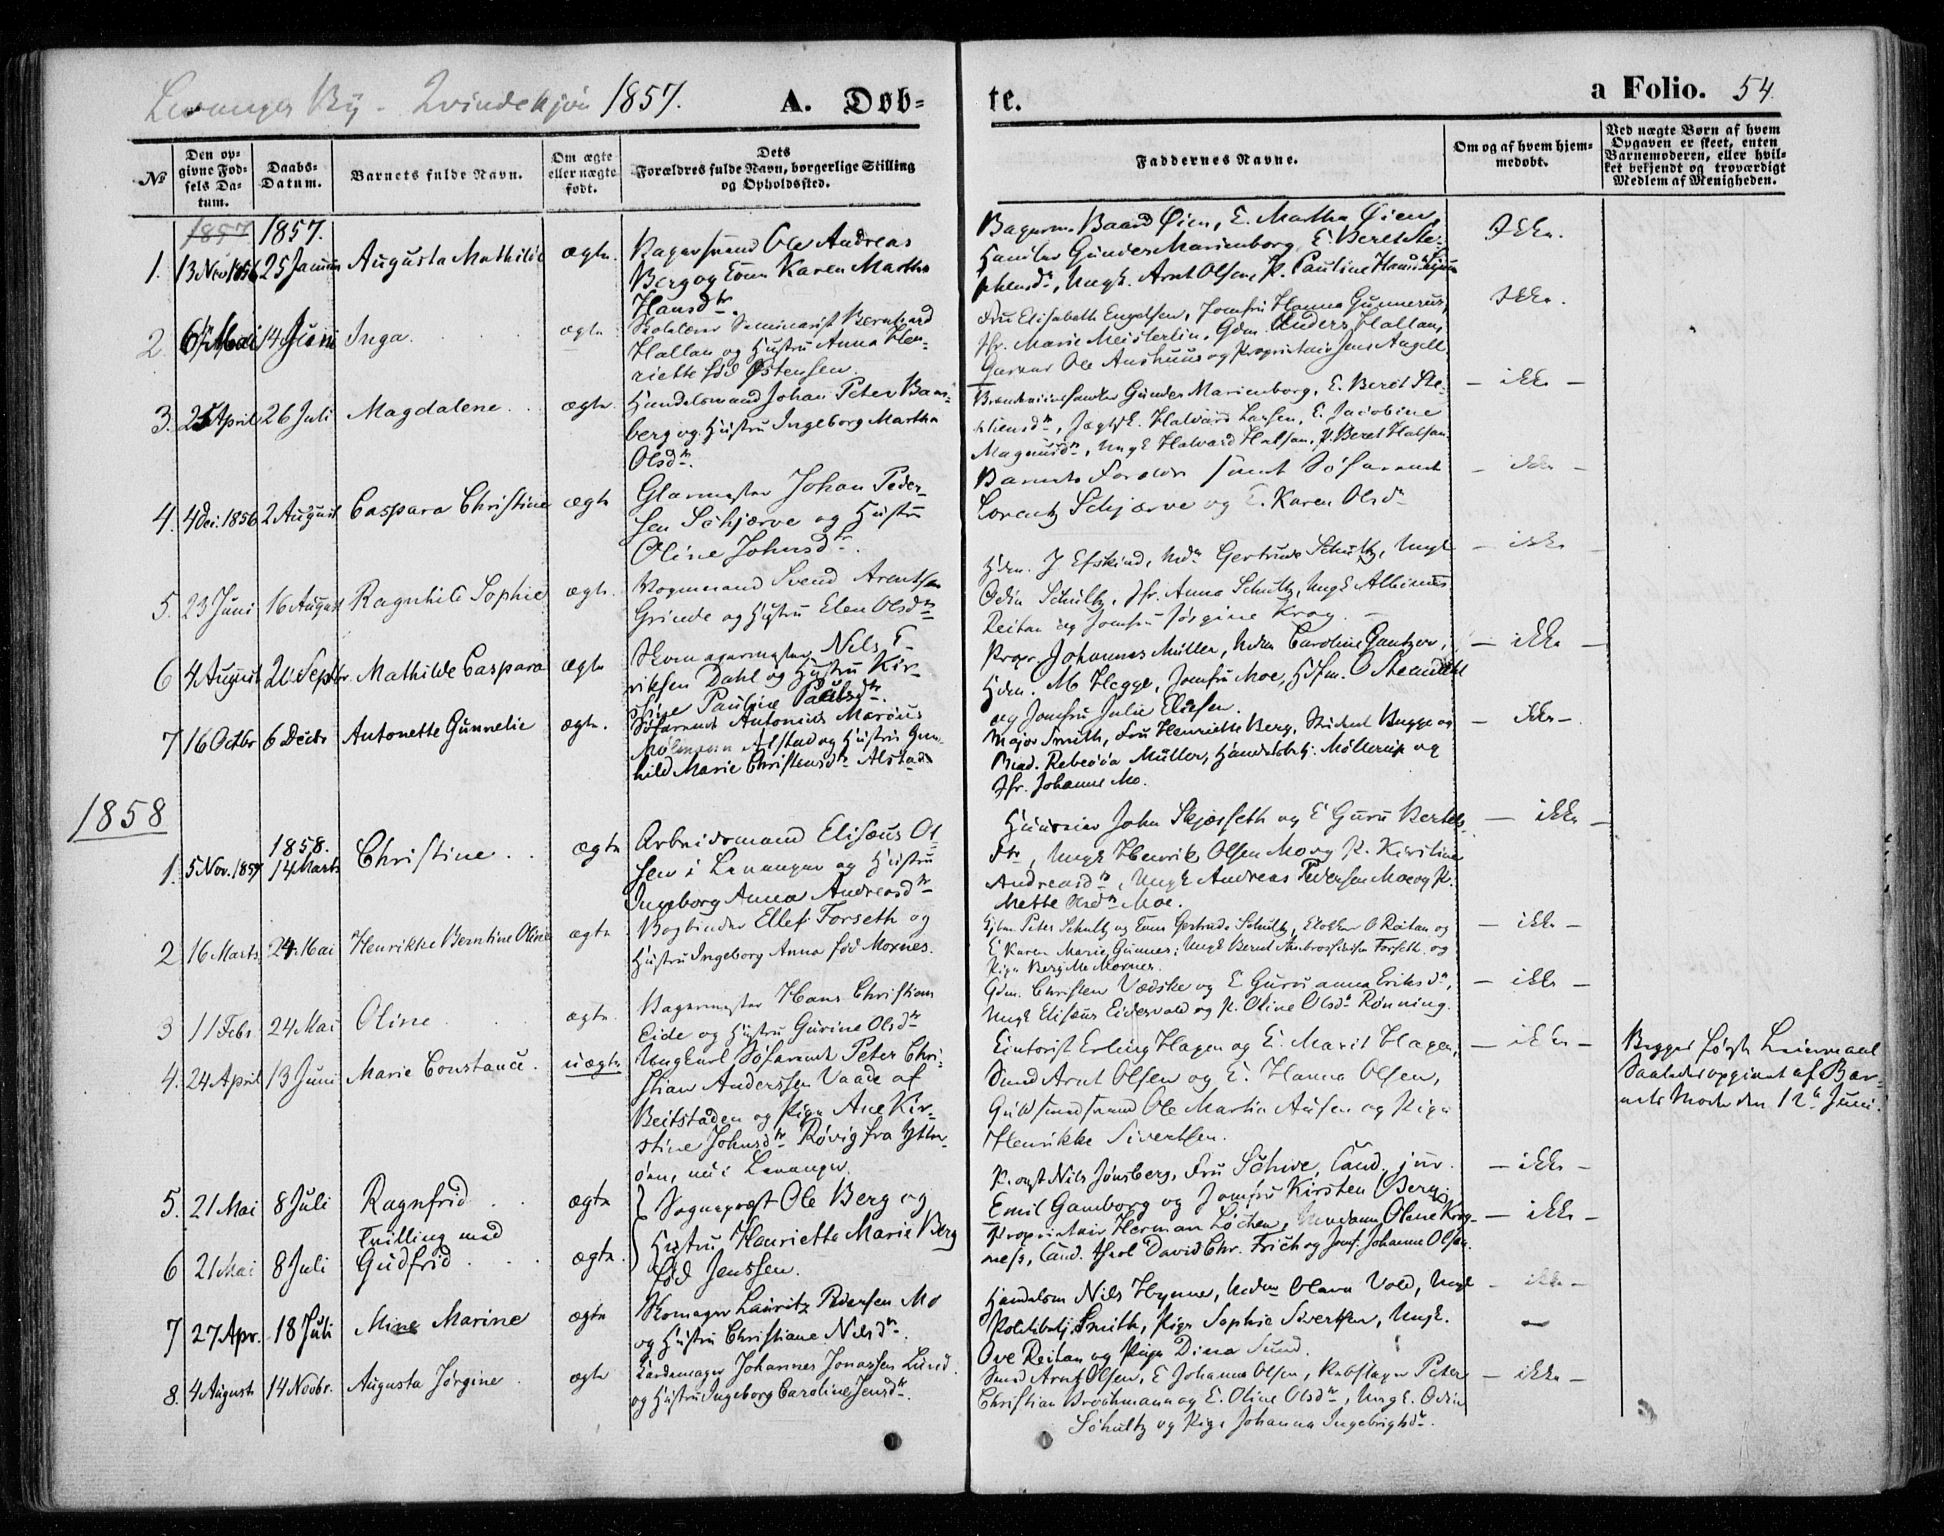 Levanger By - Qvindekjøn 1857.
A. Døb-
te.
a Folio. 54.
No
Den op-
givne Fød-
sels Da-
tum.
Daabs-
Datum.
Barnets fulde Navn.
Om ægte
eller uægte
født.
Dets
Forældres fulde Navn, borgerlige Stilling
og Opholdssted.
Faddernes Navne.
Om og af hvem hjem-
medøbt.
Ved uægte Børn af hvem
Opgaven er skeet, enten
Barnemoderen, eller hvil-
ket bekjendt og troværdigt
Medlem af Menigheden.
1857 1857.
1. 13 Nov 1856 25 Januar Augusta Mathilde ægte
Bagersvend Ole Andreas
Berg og Kone Karen Martha
Hansdr.
Bagerm. Baard Øien, E. Martha Øien,
Handler Gunder Marienborg, E. Beret Ste-
phensdr, Ungk. Arnt Olsen, P. Pauline
Ikke.
2. 6 Mai 14 Juni Inga. ægte
Skolelærer Seminarist Bernhard
Hallan og Hustru Anna Hen-
riette fød Østensen.
Fru Elisabeth Engelsen, Jomfru Hanna Gunnerus,
Jfr. Marie Meisterlin, Gdm. Anders Hallan,
Garver Ole Aushuus og Proprietair Jens Angell.
Ikke.
3. 25 April 26 Juli Magdalene. ægte.
Handelsmand Johan Peter
berg og Hustru Ingeborg Martha
Olsdr.
Gunder Marienborg, E. Beret Ste-
phensdr, Halvard Larsen, E. Jacobine
Magnusdr, Ungk Halvard Halsan, P. Beret Halsan
- ikke -
4. 4 Dec. 1856 2 August Caspara Christine ægte
Glarmester Johan Peder-
sen Schjærve og Hustru
Oline Johnsdr.
Barnets Forældre samt Søfarende
Lorentz Schjærve og E. Karen Olsdr
- ikke -
5. 23 Juni 16 August Ragnhild Sophie ægte.
Vognmand Svend Arentsen
Grinde og Hustru Elen Olsdr
Hdm. J Efskind, Mdm Gertrude Schultz, Ungk
Odin Schultz, Jfr. Anna Schultz, Ungk Albinus
Reitan og Jomfru Jørgine Krog.
- ikke
6 4 August 20 Septbr. Mathilde Caspara ægte
Skomagermester Nils E-
riksen Dahl og Hustru Kir-
stine Pauline Paulsdr.
Propr. Johannes Müller, Mdm Caroline Gantzer,
Hdm. M Hegge, Jomfru Moe, Hdfm. O
og Jomfru Julie
- ikke -
7 16 Octbr 6 Decbr Antonette Gunnelie ægte.
Søfarende Antonius Marius
Alstad og Hustru Gun-
hild Marie Christensdr Alstad
Major Smith, Fru Henriette Berg, Student Bugge og
Mad. Rebecca Müller, Handelsbetj. Møllerup og
Jfr. Johanne Mo.
- ikke -
1858
1858.
1. 5 Nov. 1857 14 Marts Christine. ægte
Arbeidsmand Elisæus Ol-
sen i Levanger og Hustru
Ingeborg Anna Andreasdr
John Skjæsseth og E Guru Bertels-
dtr, Ungk Henrik Olsen Mo og P. Kirstine
Andreasdr, Ungk Andreas Pedersen Moe og P.
Mette Olsdr Moe.
- ikke -
2 16 Marts 24 Mai Henrikke Berntine Oline ægte
Bogbinder Ellef Forseth og
Hustru Ingeborg Anna fød Moxnes.
Peter Schultz og Kone Gertrude Schultz, Klokker O Reitan og
E Karen Marie Gunnes, Ungk Bernt Forseth og
Pige Moxnes.
- ikke -
3 11 Febr 24 Mai Oline ægte.
Bagermester Hans Christian
Eide og Hustru Gurine Olsdr
Gdm. Christen Vædske og E Guru anna Eriksdr,
Ungk Elisæus Eidesvold og P. Oline Olsdr Rønning.
- ikke -
4. 24 April 13 Juni Marie Constance. uægte
Ungkarl Søfarende Peter Chri-
stian Andersen Vaade af
Beitstaden og Pige Ane Kir-
stine Johnsdr Røvig fra Ytter-
øen, nu i Levanger.
Erling Hagen og E. Marit Hagen,
Smed Arnt Olsen og E. Hanna Olsen,
Guldsmedsvend Ole Martin og Pige
Henrikke Sivertsen.
- ikke -
Begges første Leiermaal
Saaledes opgivet af Bar-
nets Moder den 12te Juni.
5. 21 Mai 8 Juli Ragnfrid ægte
Tvilling med
6 21 Mai 8 Juli Gudfrid ægte.
Sogneprest Ole Berg og
Hustru Henriette Marie Berg
fød Jenssen.
Provst Nils Jønsberg, Fru Schive, Cand. jur.
Emil Gamborg og Jomfru Kirsten Berg.
- ikke -
Proprietair Herman Løchen, Madam Olene Krog-
ness, Cand. theol David Chr. Frich og Jomf. Johanne Olsen.
- ikke -
7 27 Apr. 18 Juli Mine Marine ægte
Skomager Lauritz Pedersen Mo
og Hustru Christiane Nilsdr.
Handelsm Nils Hynne, Mdm Olava Vold, Ungk
Politibetj. Smith, Pige Sophie Sivertsen, Ungk.
Ove Reitan og Pige Dina Sund.
- ikke -
8. 4 August 14 Novbr. Augusta Jørgine. ægte
Johannes Jonassen Lund
og Hustru Ingeborg Caroline Jensdr.
Smed Arnt Olsen, E Johanna Olsen, Rebslager Peter
Christian Brochmann og E. Oline Olsdr, Ungk. Odin
Schultz og Pige Johanna Ingebrigtsdr.
- ikke -